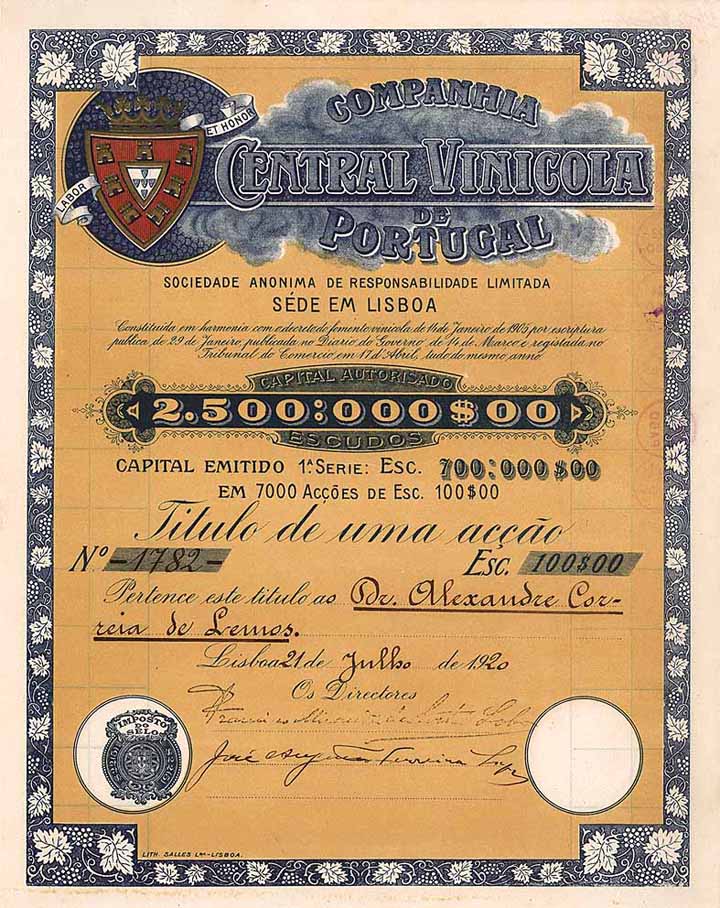 COMPANHIA
CENTRAL VINICOLA
DE
PORTUGAL
LABOR ET HONOR
SOCIEDADE ANONIMA DE RESPONSABILIDADE LIMITADA
SÉDE EM LISBOA
Constituida em harmonia com o decreto de fomento vinicola de 14 de Janeiro de 1905 por escriptura
publica de 29 de Janeiro publicada no Diario do Governo de 14 de Março e registada no
Tribunal do Comercio em 17 d'Abril, tudo do mesmo anno
CAPITAL AUTORISADO
2.500:000$00
ESCUDOS
CAPITAL EMITIDO 1.ª SERIE: ESC. 700:000$00
EM 7000 ACÇÕES DE ESC. 100$00
Titulo de uma acção
Nº -1782- ESC. 100$00
Pertence este titulo ao Dr. Alexandre Cor-
reia de Lemos.
Lisboa 21 de Julho de 1920
Os Directores
José Ferreira
IMPOSTO
DO
SELO
LITH. SALLES L.DA-LISBOA.